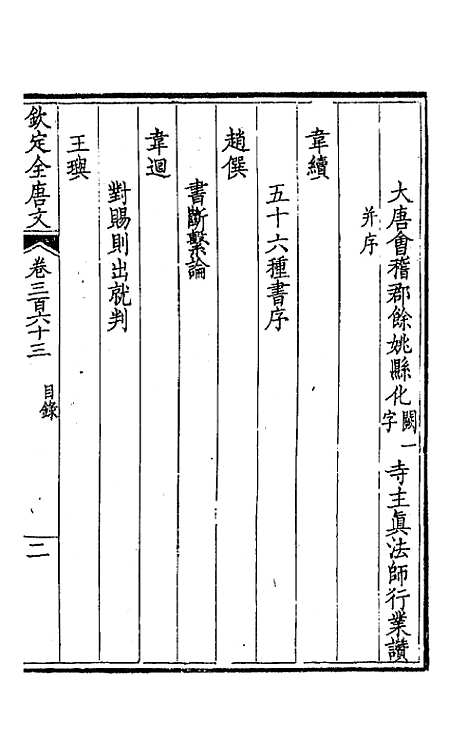 大唐會稽郡餘姚縣化闕一字寺主眞法師行業讚
并序
韋續
五十六種書序
趙僎
書斷繫論
韋迴
對賜則出就判
王璵
欽定全唐文 卷三百六十三 目錄 二